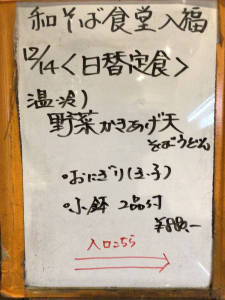 和そば食堂入福
12/14<日替定食>
温・冷)
野菜かきあげ天
そばうどん
・おにぎり(
・小鉢 2品付
¥880.-
入口こちら